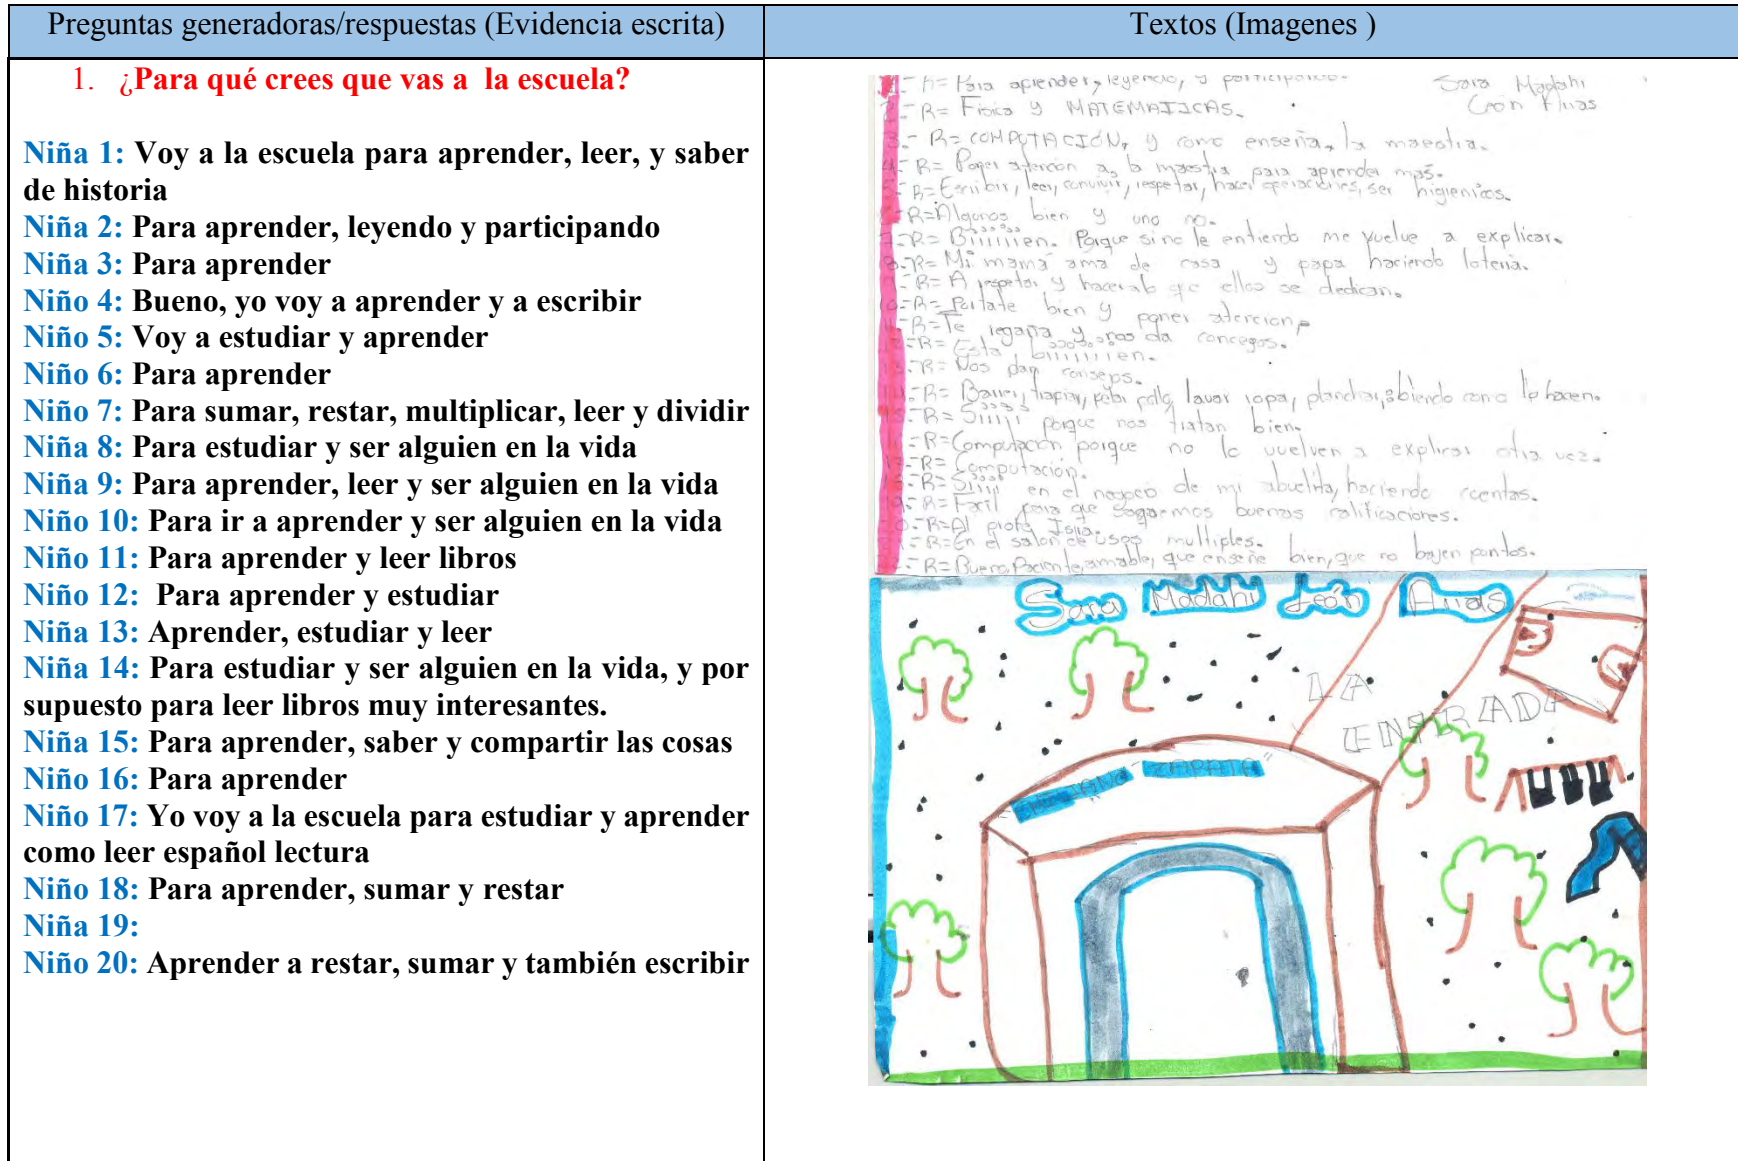 Preguntas generadoras/respuestas (Evidencia escrita)
Textos (Imagenes )
1. ¿Para qué crees que vas a la escuela?
Niña 1: Voy a la escuela para aprender, leer, y saber
de historia
Niña 2: Para aprender, leyendo y participando
Niña 3: Para aprender
Niño 4: Bueno, yo voy a aprender y a escribir
Niño 5: Voy a estudiar y aprender
Niño 6: Para aprender
Niño 7: Para sumar, restar, multiplicar, leer y dividir
Niña 8: Para estudiar y ser alguien en la vida
Niña 9: Para aprender, leer y ser alguien en la vida
Niño 10: Para ir a aprender y ser alguien en la vida
Niño 11: Para aprender y leer libros
Niño 12: Para aprender y estudiar
Niño 13: Aprender, estudiar y leer
Niña 14: Para estudiar y ser alguien en la vida, y por
supuesto para leer libros muy interesantes.
Niña 15: Para aprender, saber y compartir las cosas
Niño 16: Para aprender
Niño 17: Yo voy a la escuela para estudiar y aprender
como leer español lectura
Niño 18: Para aprender, sumar y restar
Niña 19:
Niño 20: Aprender a restar, sumar y también escribir
R= Para aprender, leyendo, y participando. Sara Madahi
R= Fisica y MATEMATICAS. León
3.- R= COMPUTACIÓN, y como enseña, la maestra.
R= Poner atencón a, la maestra para aprender mas.
R= Escribir, leer, convivir, respetar, hacer operaciones, ser higienicos.
R= Algunos bien y uno no.
7.- R= Biiiiiien. Porque si no le entiendo me vuelve a explicar.
8.- R= Mi mamá ama de casa y papa haciendo loteria.
R= A respetar y hacer lo que ellos se dedican.
R= Portate bien y poner atencion
R= Te regaña y nos da concegos.
R= Esta biiiiiiien.
R= Nos dan conseps.
R= Barrer, trapiar, pollo, lavar ropa, planchar, biendo como lo hacen.
R= Siiiii porque nos tratan bien.
R= Computacón porque no lo vuelven a explicar otra vez.
R= Computación.
R= Siiiii en el negoco de mi abuelita, haciendo cuentas.
R= Facil para que saquemos buenas calificaciones.
R= Al profe
R= En el salon de usos multiples.
R= Bueno, Paciente, amable, que enseñe bien, que no bajen puntos.
Sara Madahi León
LA
ENTRADA
EMILIANO "ZAPATA"